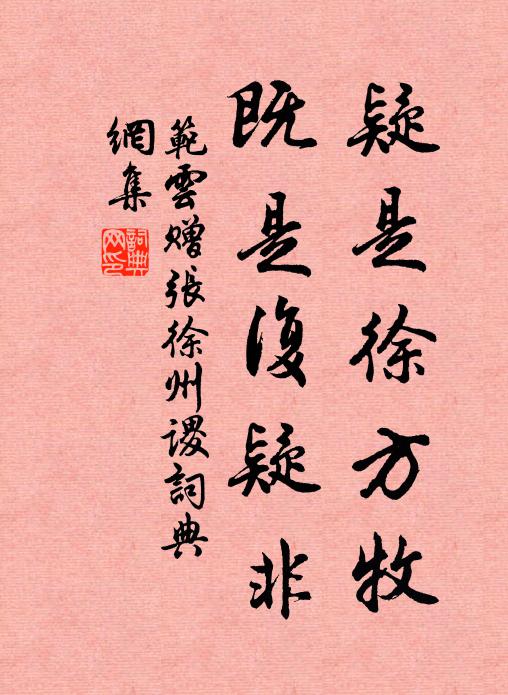 疑是徐方牧
既是復疑非
範雲赠張徐州谡詞典
網集
詞典
网印